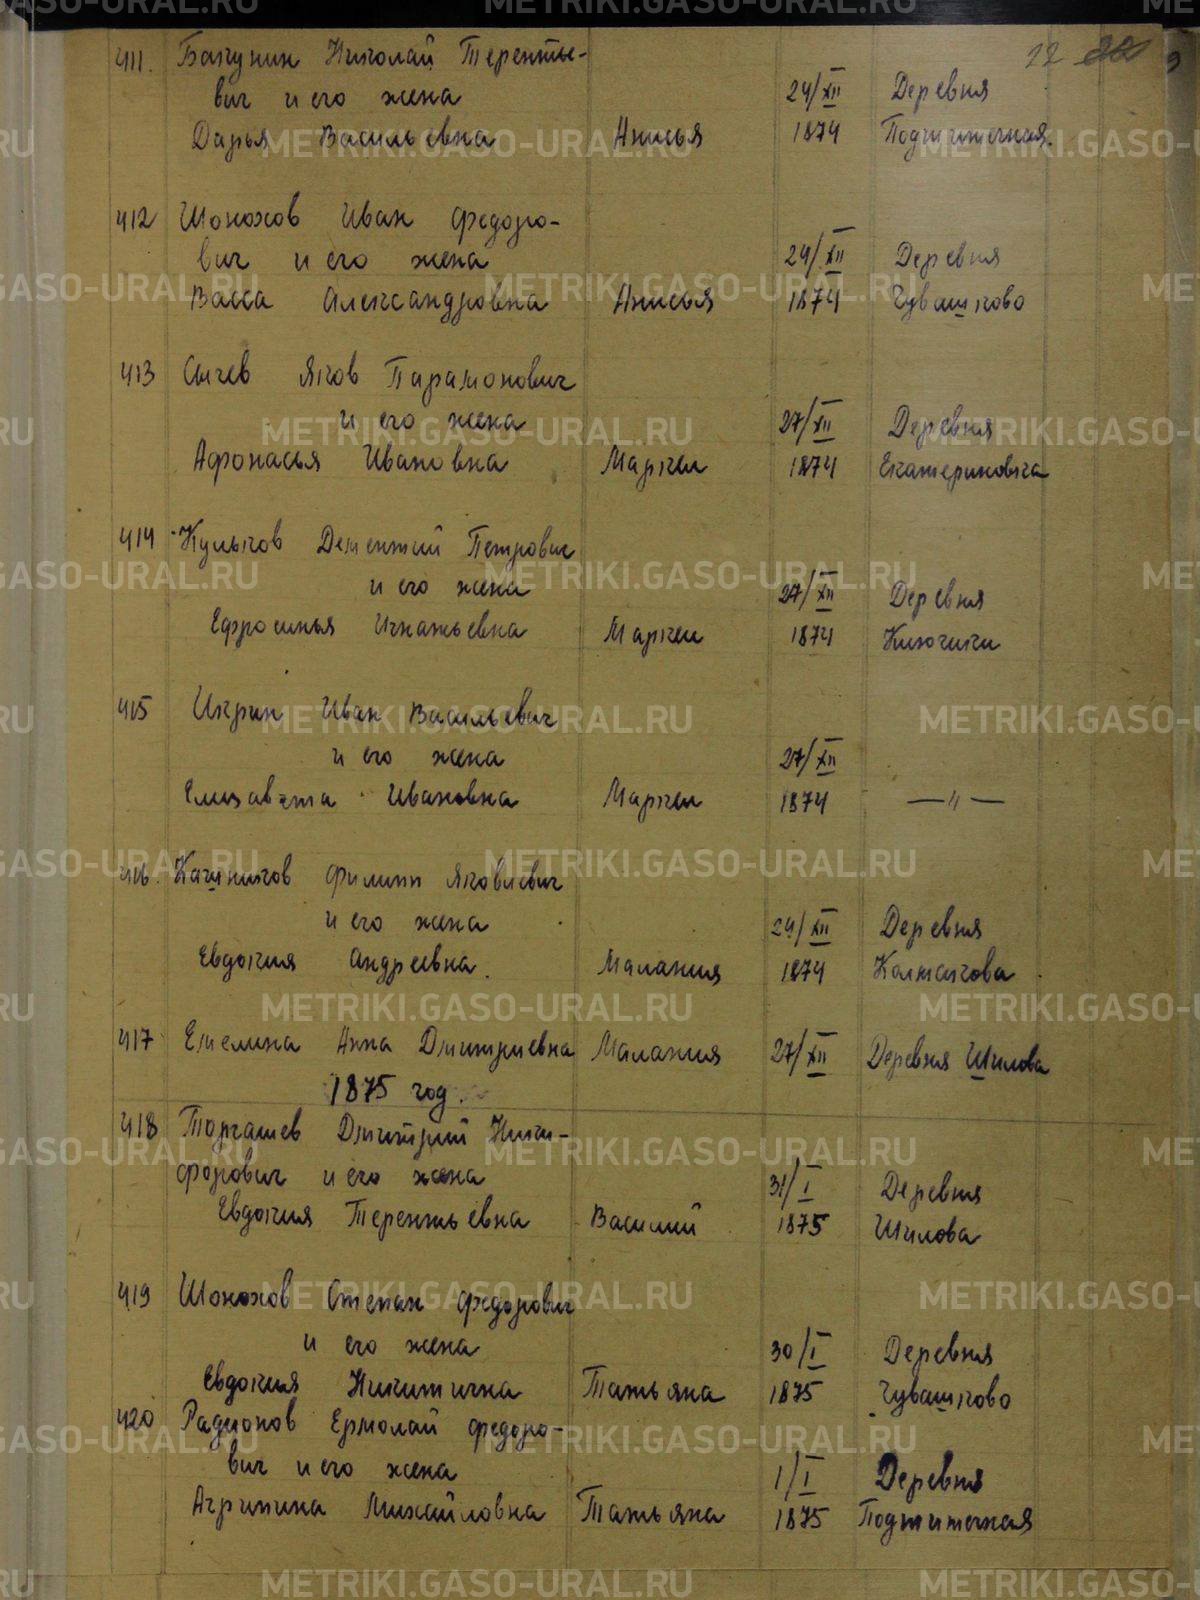 12
411. Бакунин Николай Терентье-
вич и его жена 24/XII Деревня
Дарья Васильевна Анисья 1874
412 Шонохов Иван Федоро-
вич и его жена 24/XII Деревня
Васса Александровна Анисья 1874 Чувашково
413 Сычев Яков Парамонович
и его жена 27/XII Деревня
Афонасья Ивановна Маркел 1874 Екатериновка
414 Кульков Дементий Петрович
и его жена 27/XII Деревня
Ефросинья Игнатьевна Маркел 1874 Ключики
415 Икрин Иван Васильевич
и его жена 27/XII
Елизавета Ивановна Маркел 1874 —〃—
416. Филипп Яковлевич
и его жена 29/XII Деревня
Евдокия Андреевна. Малания 1874
417 Емелина Анна Дмитриевна Малания 27/XII Деревня Шилова
1875 год.
418 Торгашев Дмитрий Ники-
форович и его жена 31/I Деревня
Евдокия Терентьевна Василий 1875 Шилова
419 Шонохов Степан Федорович
и его жена 30/I Деревня
Евдокия Никитична Татьяна 1875 Чувашково
420 Радионов Ермолай Федоро-
вич и его жена 1/I Деревня
Агрипина Михайловна Татьяна 1875
METRIKI.GASO-URAL.RU